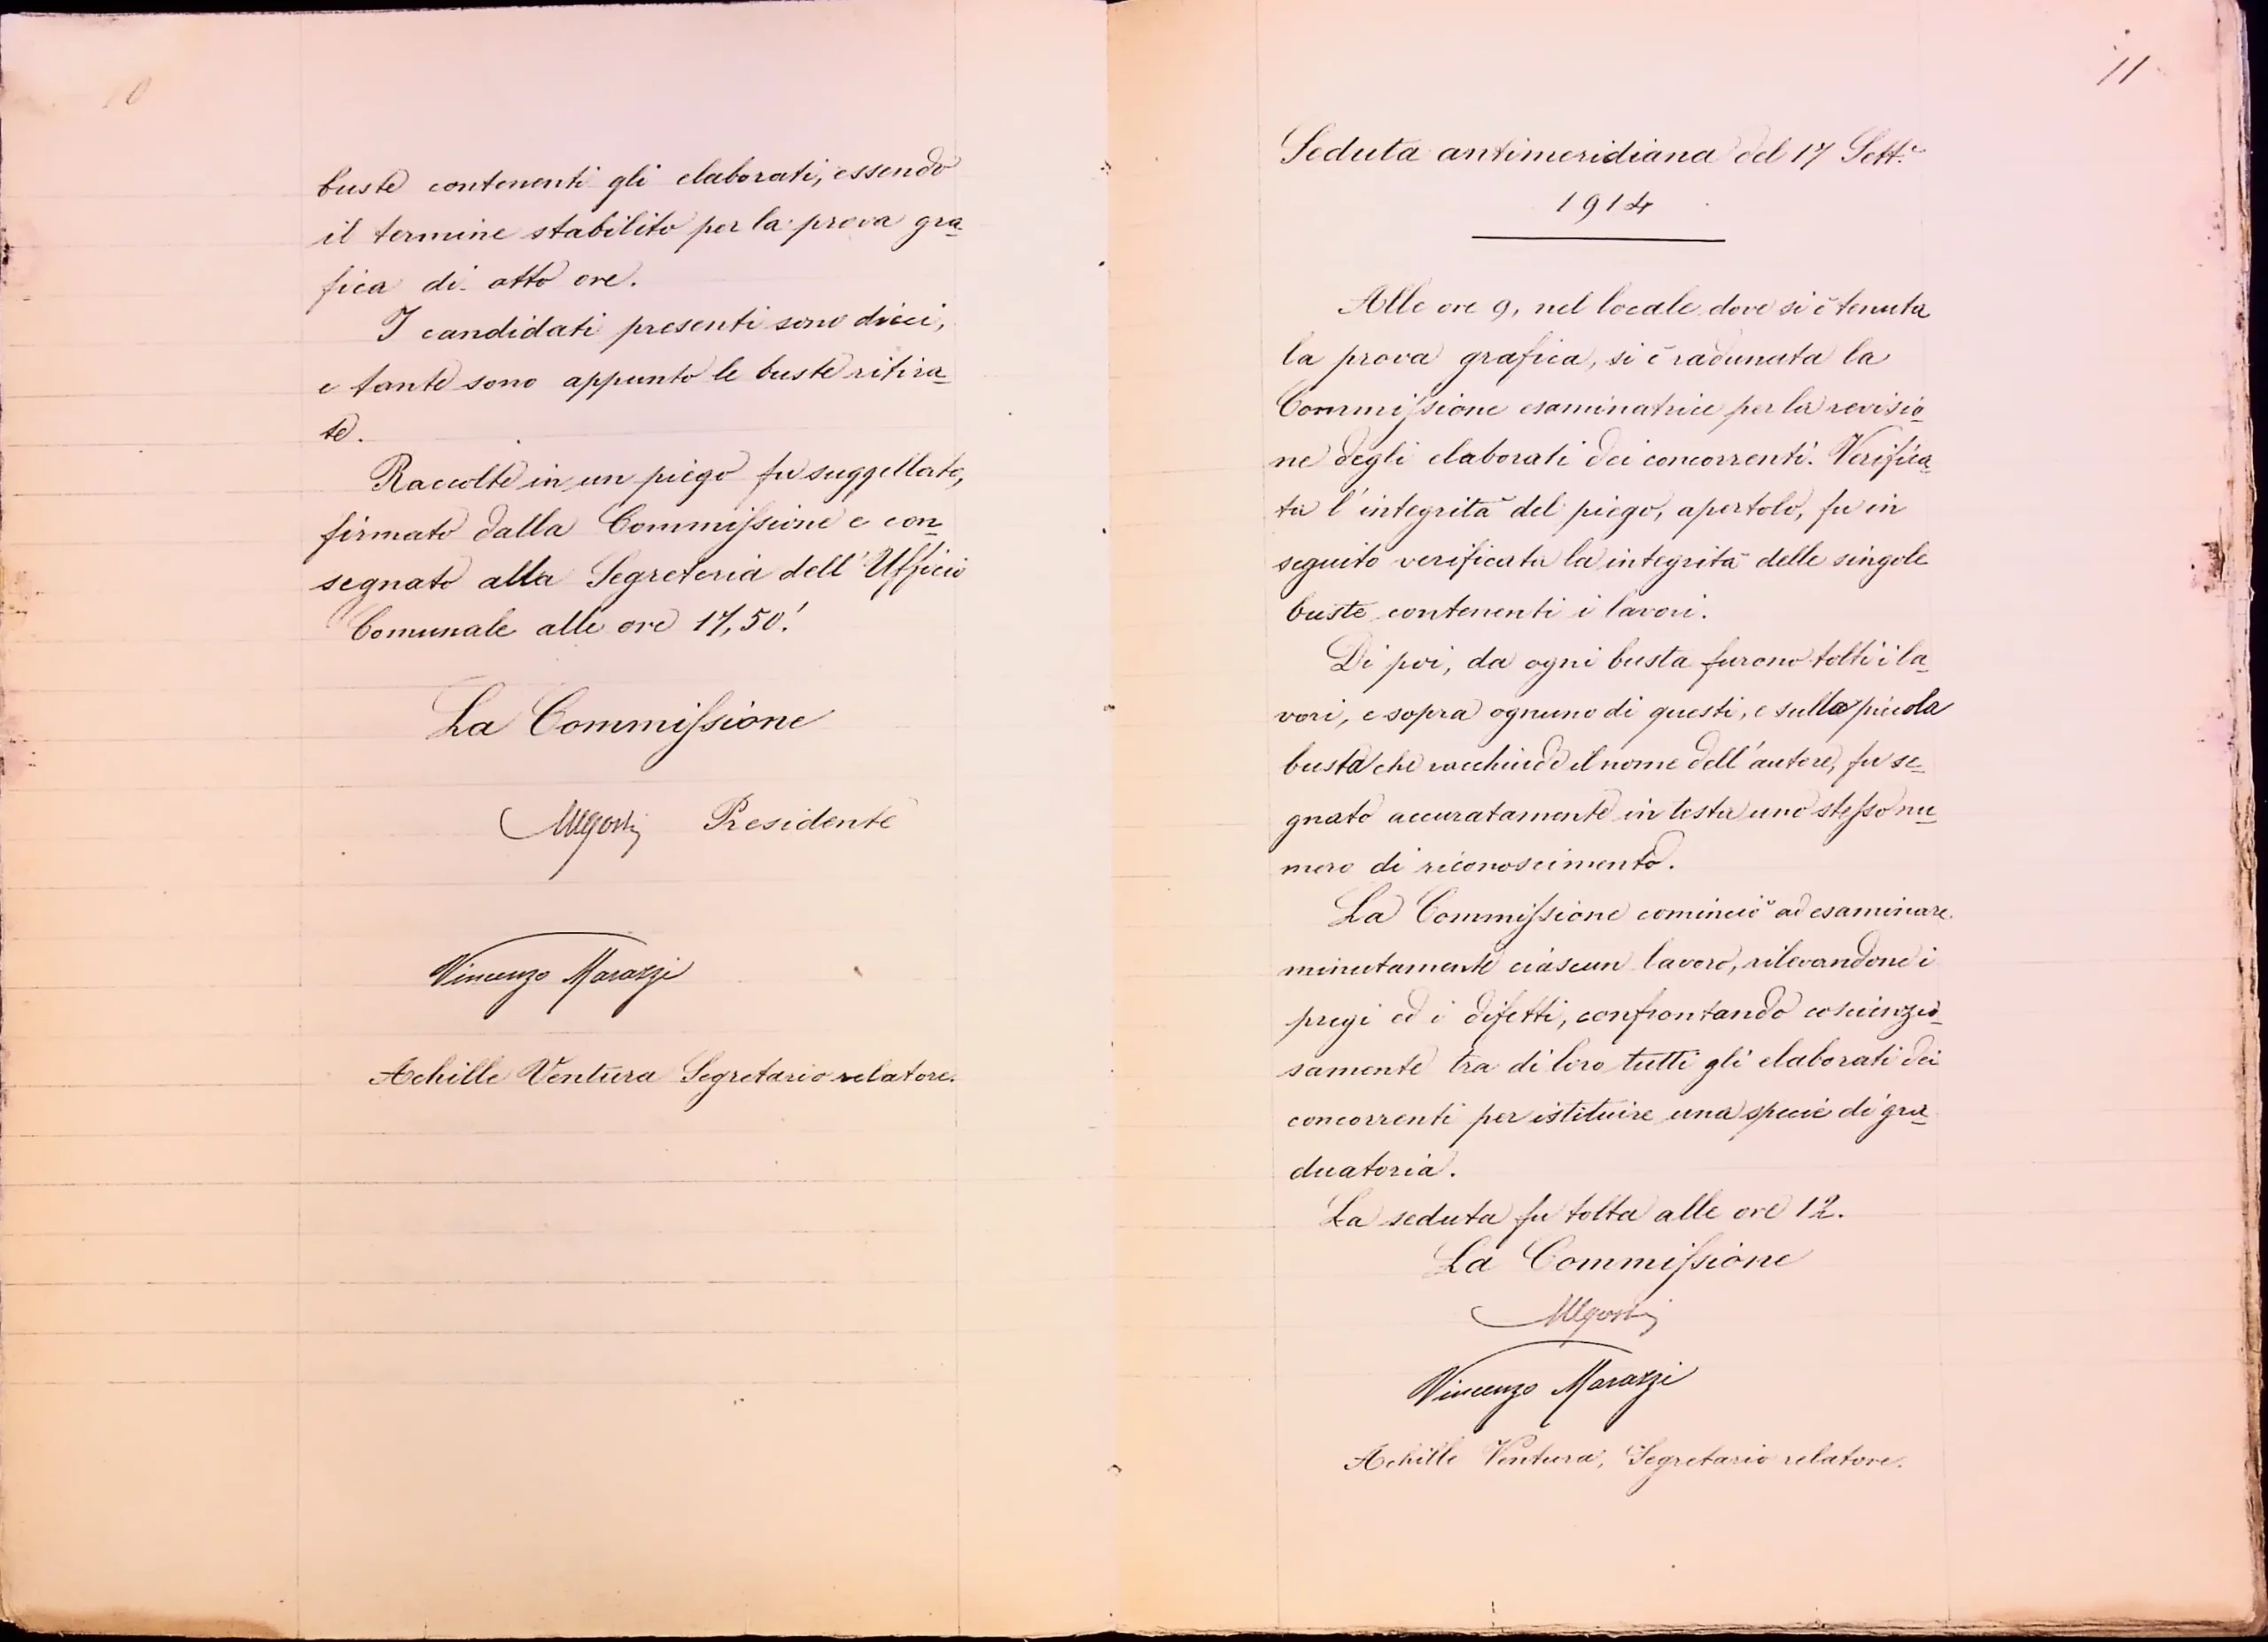 10
buste contenenti gli elaborati, essendo
il termine stabilito per la prova gra-
fica di otto ore.
I candidati presenti sono dieci,
e tante sono appunto le buste ritira-
te.
Raccolte in un piego fu suggellato,
firmato dalla Commissione e con-
segnato alla Segreteria dell'Ufficio
Comunale alle ore 17,50'.
La Commissione
Presidente
Vincenzo Marazzi
Achille Ventura Segretario relatore.
11
Seduta antimeridiana del 17 Sett.e
1914
Alle ore 9, nel locale dove si è tenuta
la prova grafica, si è radunata la
Commissione esaminatrice per la revisio-
ne degli elaborati dei concorrenti. Verifica-
ta l'integrità del piego, apertolo, fu in
seguito verificata la integrità delle singole
buste contenenti i lavori.
Di poi, da ogni busta furono tolti i la-
vori, e sopra ognuno di questi, e sulla piccola
busta che racchiude il nome dell'autore, fu se-
gnato accuratamente in testa uno stesso nu-
mero di riconoscimento.
La Commissione cominciò ad esaminare
minutamente ciascun lavoro, rilevandone i
pregi ed i difetti, confrontando coscienzio-
samente tra di loro tutti gli elaborati dei
concorrenti per istituire una specie di gra-
duatoria.
La seduta fu tolta alle ore 12.
La Commissione
Vincenzo Marazzi
Achille Ventura, Segretario relatore.